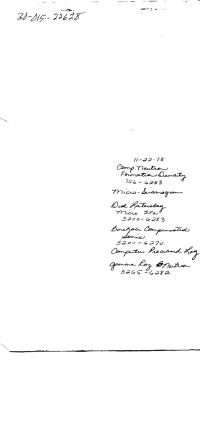 30-015-22628
11-22-78
Comp. Neutron
Formation Density
256-6283
Micro-Seismogram
Dual Laterolog
Micro SFL
5200-6283
Borehole Compensated
Sonic
5200-6270
Computer Processed Log
Gamma Ray Neutron
5265-6282